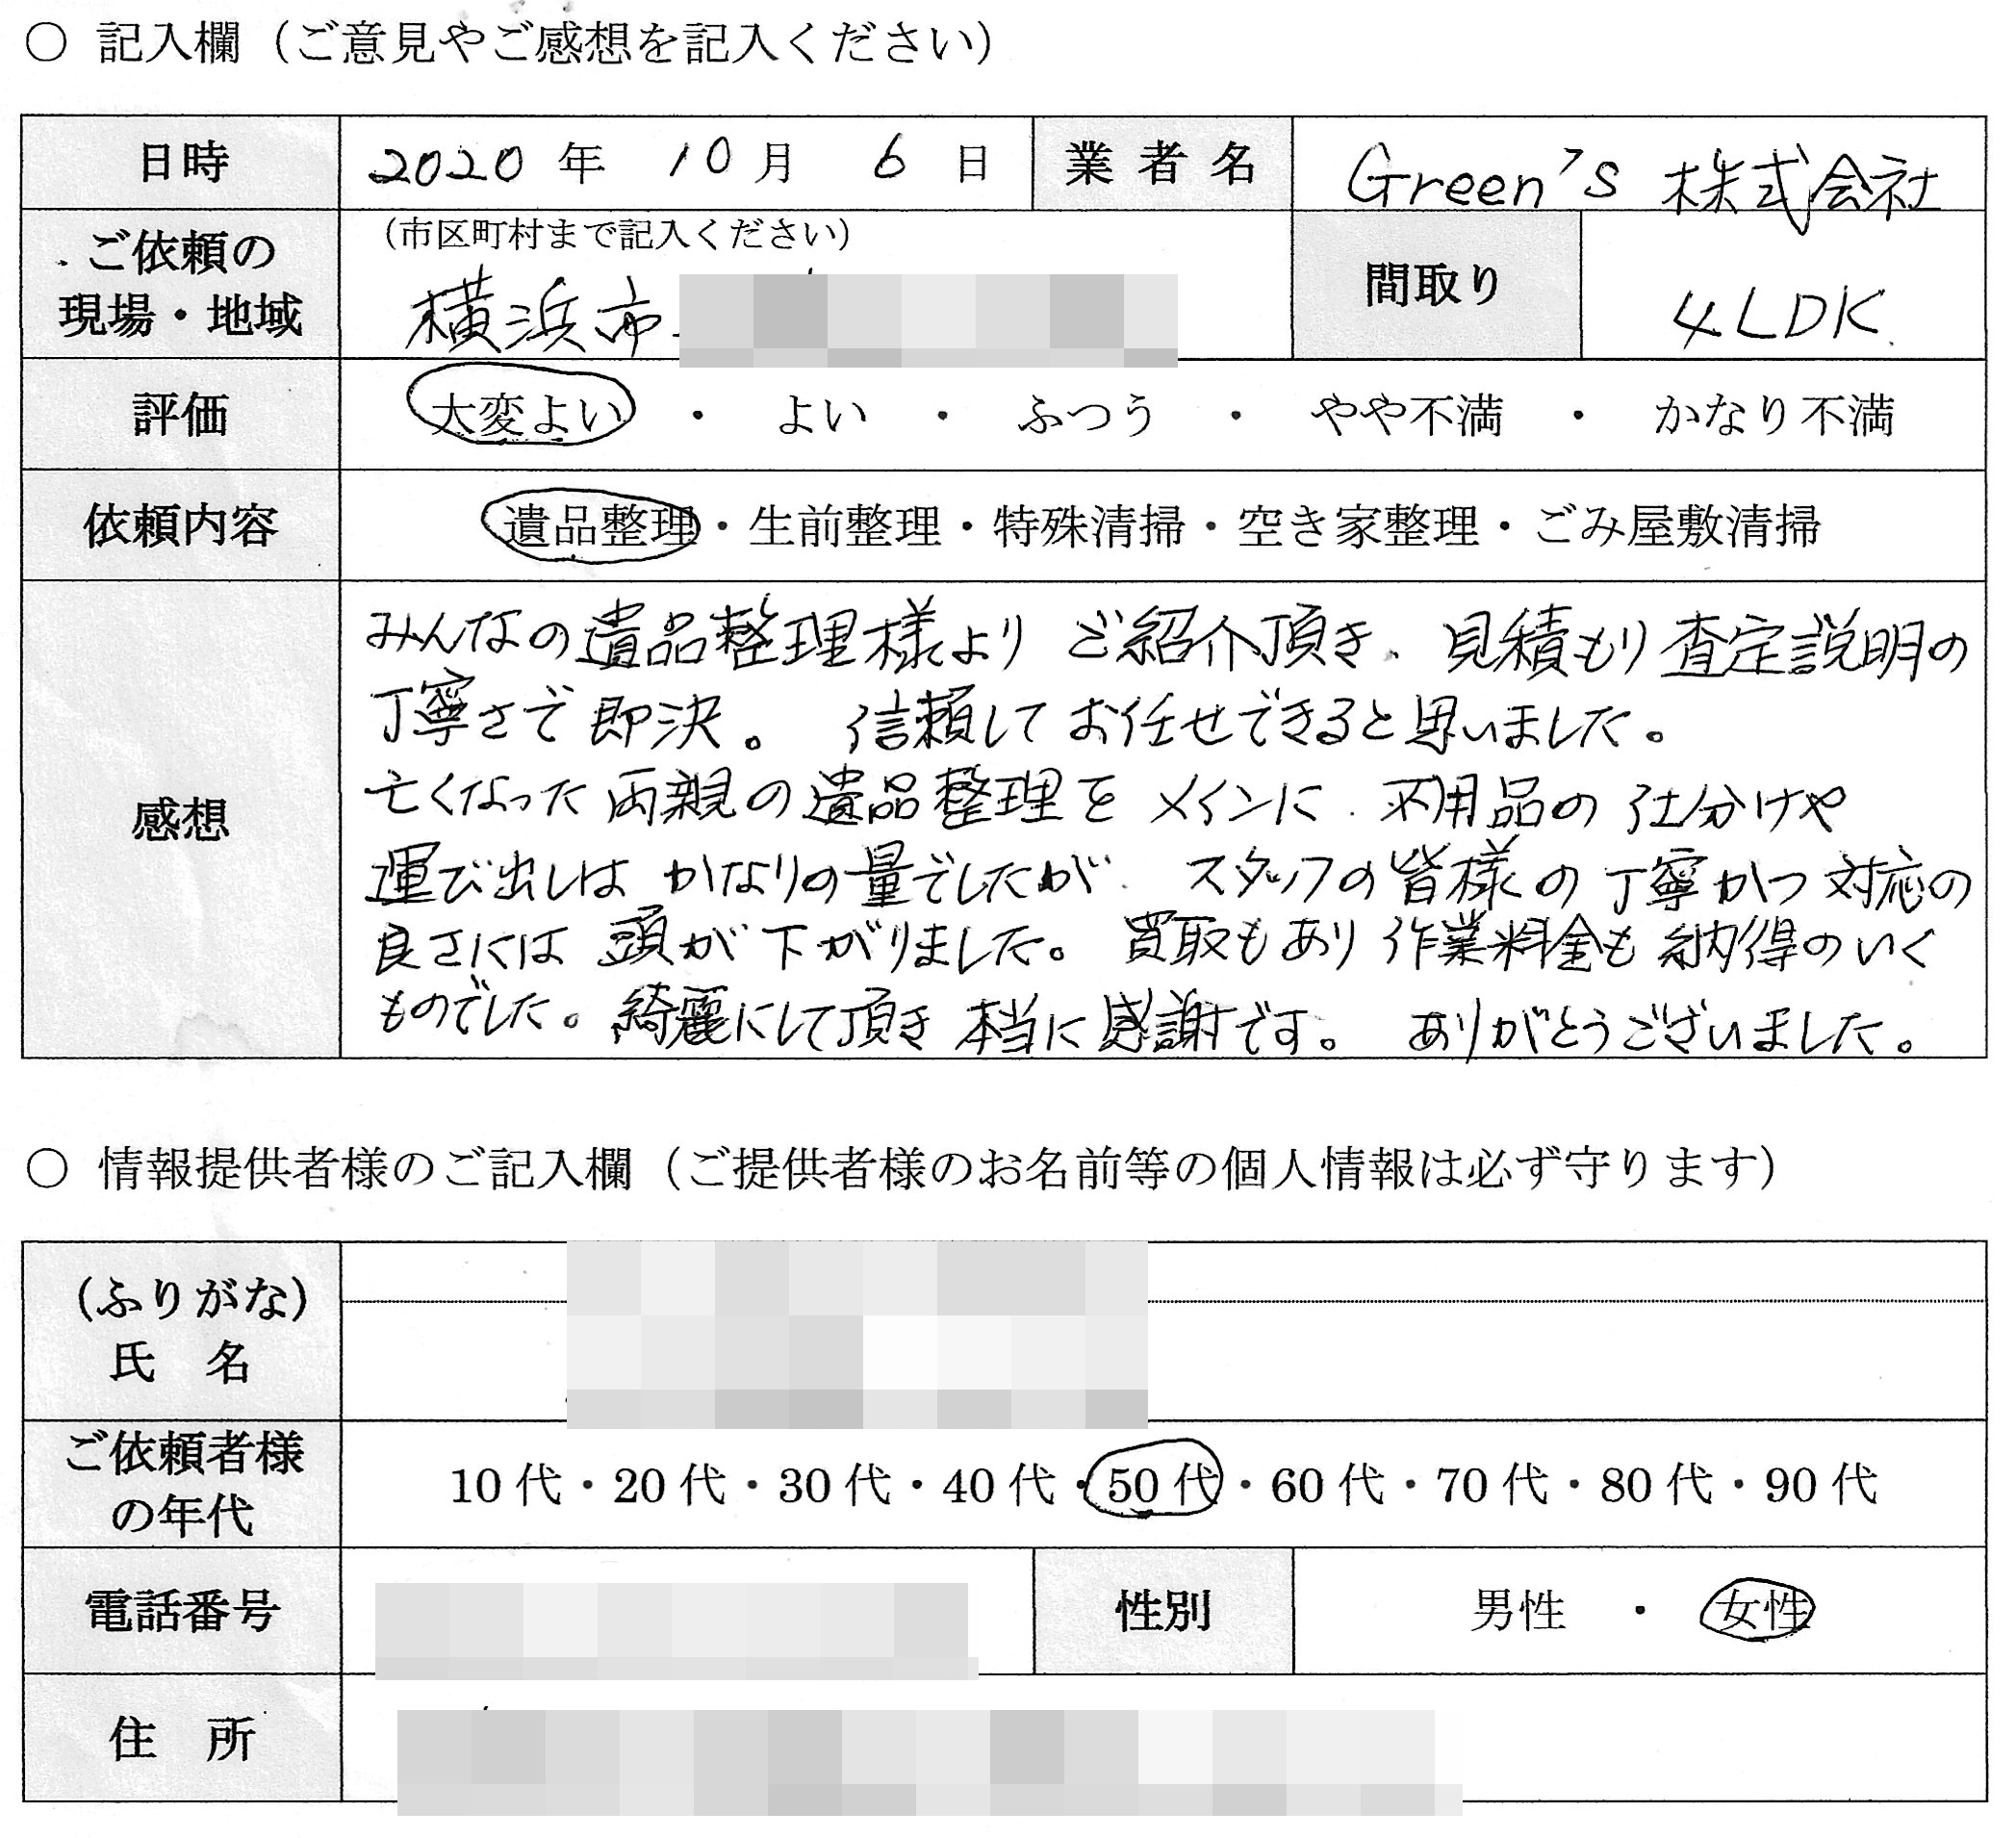 ○ 記入欄（ご意見やご感想を記入ください）
日時 2020 年 10 月 6 日 業者名 Green's 株式会社
ご依頼の現場・地域 （市区町村まで記入ください）
横浜市 間取り 4LDK
評価 大変よい ・ よい ・ ふつう ・ やや不満 ・ かなり不満
依頼内容 遺品整理・生前整理・特殊清掃・空き家整理・ごみ屋敷清掃
感想
みんなの遺品整理様より ご紹介頂き、見積もり査定説明の
丁寧さで即決。 信頼してお任せできると思いました。
亡くなった両親の遺品整理をメインに、不用品の仕分けや
運び出しはかなりの量でしたが、スタッフの皆様の丁寧かつ対応の
良さには頭が下がりました。買取もあり作業料金も納得のいく
ものでした。綺麗にして頂き本当に感謝です。 ありがとうございました。
○ 情報提供者様のご記入欄（ご提供者様のお名前等の個人情報は必ず守ります）
（ふりがな）
氏 名
ご依頼者様
の年代 10代・20代・30代・40代・50代・60代・70代・80代・90代
電話番号 性別 男性 ・ 女性
住 所